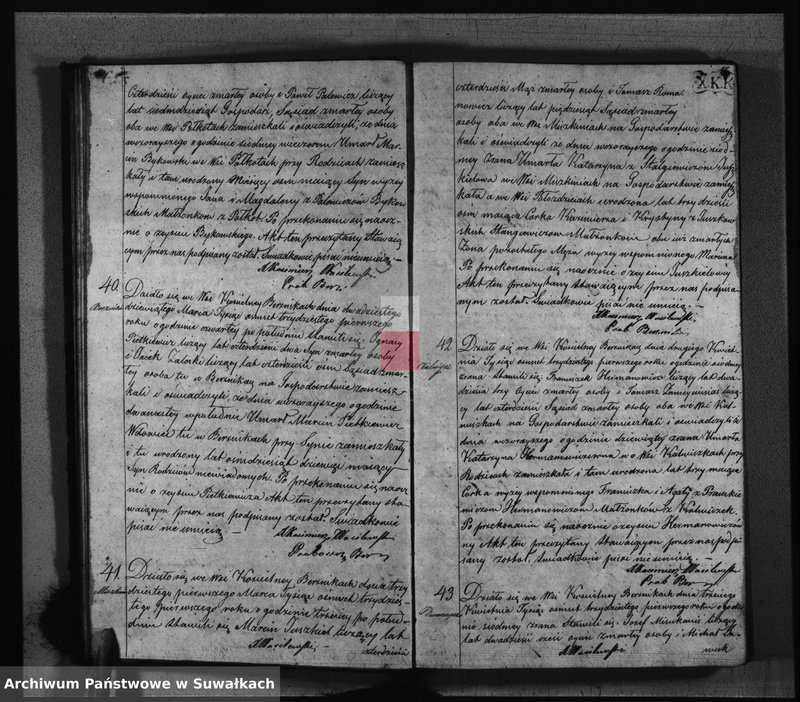 czterdzieści ojciec zmarłey osoby i Paweł Palewicz liczący
lat siedmdziesiąt Gospodarz, Sąsiad zmarłey osoby
oba we Wsi Pełkotach zamieszkali i oświadczyli, że dnia
wczorayszego o godzinie siodmey wieczorem Umarł Mar-
cin Bykowski we Wsi Pełkotach przy Rodzicach zamiesz-
kały i tam urodzony Miesięcy osm maiący Syn wyżey
wspomnionego Jana i Magdaleny z Palewiczów Bykow-
skich Małżonków z Pełkot Po przekonaniu się naocz-
nie o zeyściu Bykowskiego. Akt ten przeczytany Stawaią-
cym przez nas podpisany został. Świadkowie pisać nieumieią. –
X Kazimierz Wasilewski
Prob Berz:
40.
Berzniki
Działo się we Wsi Kościelney Bernikach dnia dwudziestego
dziewiątego Marca Tysiąc osmset trzydziestego pierwszego
roku o godzinie czwartey po południu stawili się: Ignacy
Pietkiewicz liczący lat czterdzieści dwa Syn zmarłey osoby
i Jacek Zaleski liczący lat czterdzieści osm Sąsiad zmar-
łey osoby oba tu w Bernikach na Gospodarstwie zamiesz-
kali i oświadczyli, że dnia wczorayszego o godzinie
dwunastey w południe Umarł Marcin Pietkiewicz
Wdowiec tu w Bernikach przy Synie zamieszkały
i tu urodzony lat osmdziesiąt dziewięć maiący
Syn Rodziców niewiadomych. Po przekonaniu się naocz-
nie o zeyściu Pietkiewicza Akt ten przeczytany sta-
waiącym przez nas podpisany został. Świadkowie
pisać nie umieią. –
X Kazimierz Wasilewski
Proboszcz Berz
41.
Działo się we Wsi Kościelney Bernikach dnia trzy-
dziestego pierwszego Marca Tysiąc osmset trzydzies-
tego pierwszego roku o godzinie trzeciey po połud-
niu stawili się Marcin Juszkiel liczący lat
X Wasilewski
czterdzieści
XKK
czterdzieści Mąż zmarłey osoby i Tomasz Roma
nowicz liczący lat pięćdziesiąt Sąsiad zmarłey
osoby oba we Wsi Miszkiniach na Gospodarstwie zamiesz-
kali i oświadczyli że dnia wczorayszego o godzinie siód-
mey zrana Umarła Katarzyna z Stalgiewiczów Jusz-
kielowa w Wsi Miszkiniach na Gospodarstwie zamiesz-
kała a we Wsi urodzona lat trzydzieści
osm maiąca Corka Kazimierza i Krystyny z
Małżonków obu iuż zmarłych
Żona pozostałego Męża wyżey wspomnionego Marcina
Po przekonaniu się naocznie o zeyściu Juszkielowey
Akt ten przeczytany stawaiącym przez nas podpisa-
nym został. Świadkowie pisać nie umieią. –
X Kazimierz Wasilewski
Prob Bernik
42
Działo się we Wsi Kościelney Bernikach dnia drugiego Kwiet-
nia Tysiąc osmset trzydziestego pierwszego roku o godzinie siodmey
zrana stawili się: Franciszek Hermanowicz liczący lat dwa-
dzieścia trzy Oyciec zmarłey osoby i Tomasz liczą-
cy lat czterdzieści Sąsiad zmarłey osoby oba we Wsi
na Gospodarstwie zamieszkali i oświadczyli że
dnia wczorayszego o godzinie dziewiątey zrana Umarła
Katarzyna Hermanowiczowna w Wsi przy
Rodzicach zamieszkała i tam urodzona lat trzy maiąca
Corka wyżey wspomnionego Franciszka i Agaty z
Hermanowiczow Małżonkow z
Po przekonaniu się naocznie o zeyściu Hermanowiczow-
ny Akt ten przeczytany stawaiącym przez nas podpi-
sany został. Świadkowie pisać nie umieią. –
X Kazimierz Wasilewski
Prob Berz
43
Działo się we Wsi Kościelney Bernikach dnia trzeciego
Kwietnia Tysiąc osmset trzydziestego pierwszego roku o godzi-
nie siodmey zrana stawili się: Jozef liczący
lat dwadzieścia sześć oyciec zmarłey osoby i Michał
X Wasilewski
Archiwum Państwowe w Suwałkach